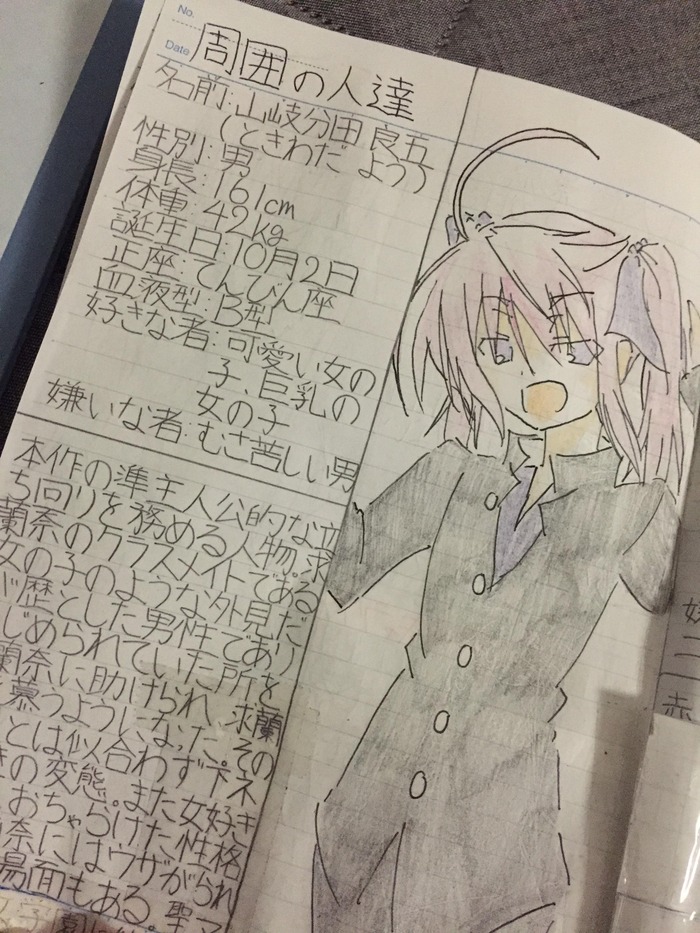 No.
Date
周囲の人達
名前:山岐分田 良五
(ときわだ ようう
性別:男
身長:161cm
体重:42kg
誕生日:10月2日
正座:てんびん座
血液型:B型
好きな者:可愛い女の
子、巨乳の
女の子
嫌いな者:むさ苦しい男
本作の準主人公的な立
ち回りを務める人物。求
蘭奈のクラスメイトである
女の子のような外見だ
が歴とした男性であり
じめられていた所を
蘭奈に助けられ、求蘭
慕うようになった。その
とは似合わず下ネ
の変態。また女好き
おちゃらけた性格
奈にはウザがられ
場面もある。聖マ
赤